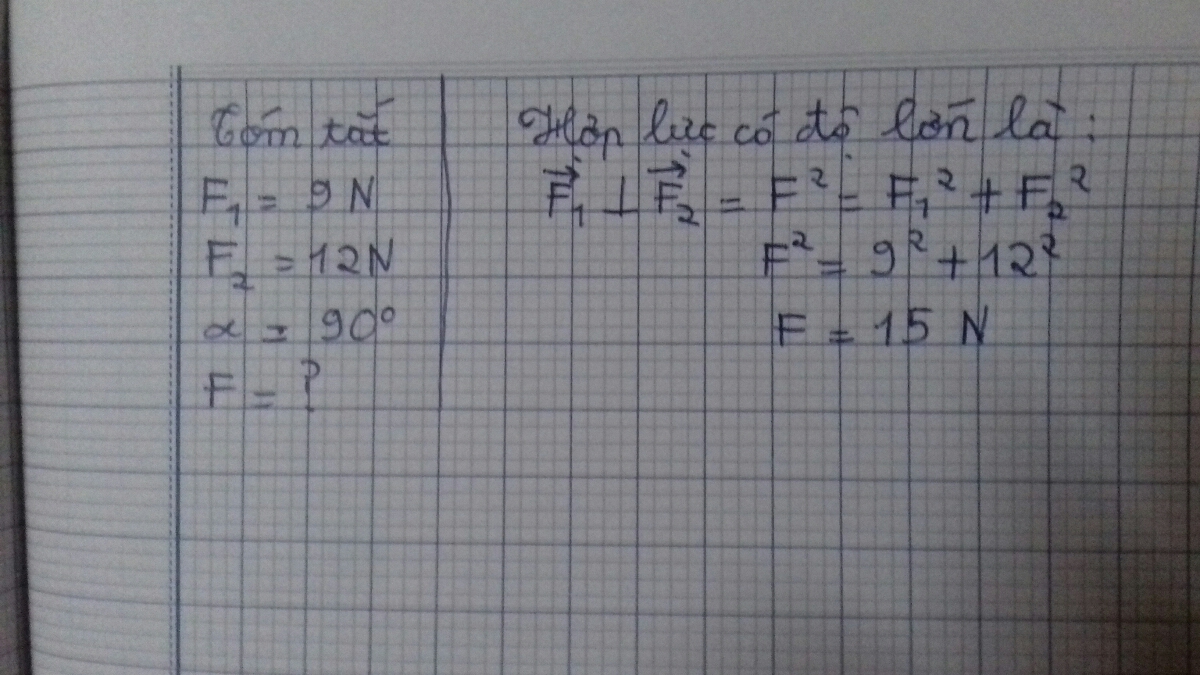 Tóm tắt
F₁ = 9 N
F₂ = 12N
α = 90°
F = ?
Hợp lực có độ lớn là :
F⃗₁ ⊥ F⃗₂ = F² = F₁² + F₂²
F² = 9² + 12²
F = 15 N